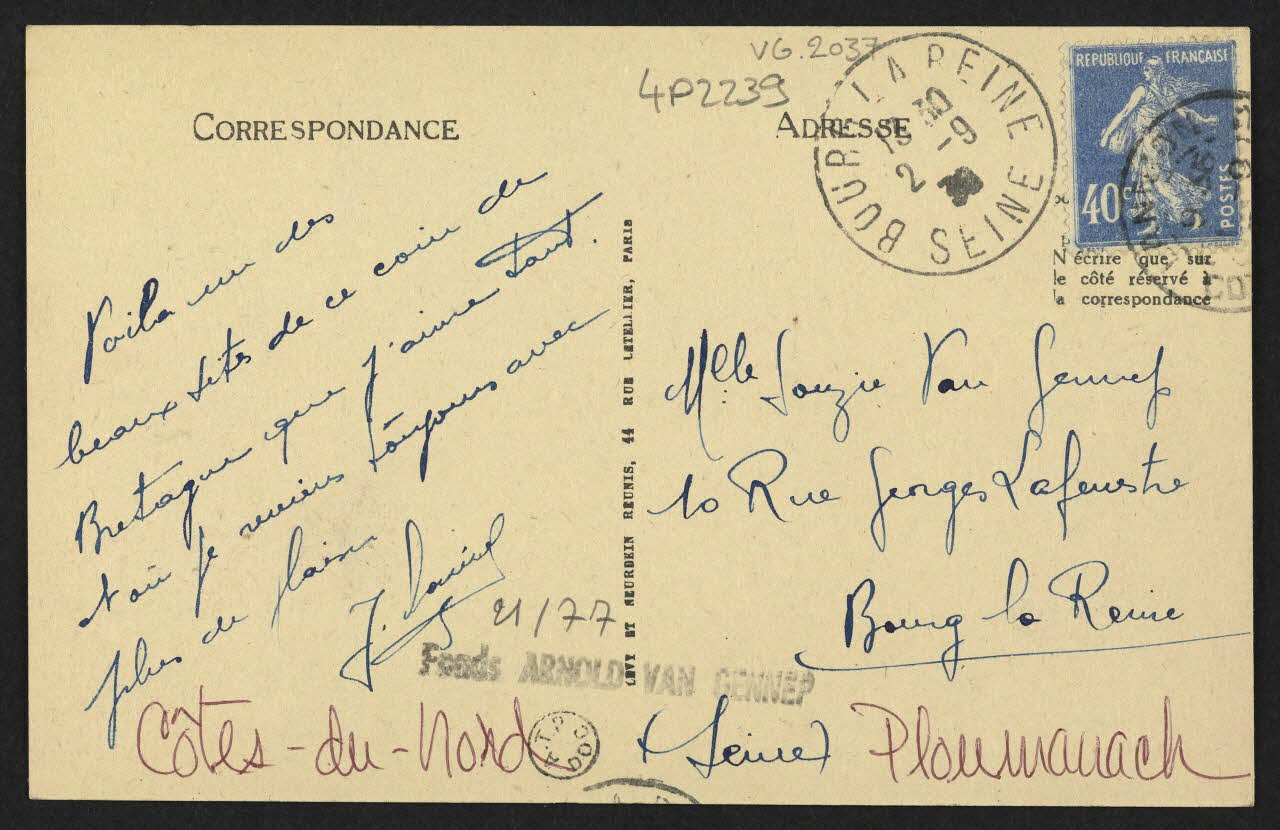 VG.2037
4P2239
CORRESPONDANCE
ADRESSE
BOURG LA REINE
13 30
2 -9
SEINE
REPUBLIQUE FRANÇAISE
40c
POSTES
N écrire que sur
le côté réservé à
la correspondance
Voila un des
beaux sites de ce coin de
Bretagne que j'aime tant.
et où je reviens toujours avec
plus de plaisir
J.
LEVY ET NEURDEIN REUNIS, 44 RUE LETELLIER, PARIS
Mlle Souzie Van Gennep
10 Rue Georges Lafenestre
Bourg la Reine
(Seine)
21/77
Fonds ARNOLD VAN GENNEP
Côtes-du-Nord
A.T.P
DOC
Ploumanach